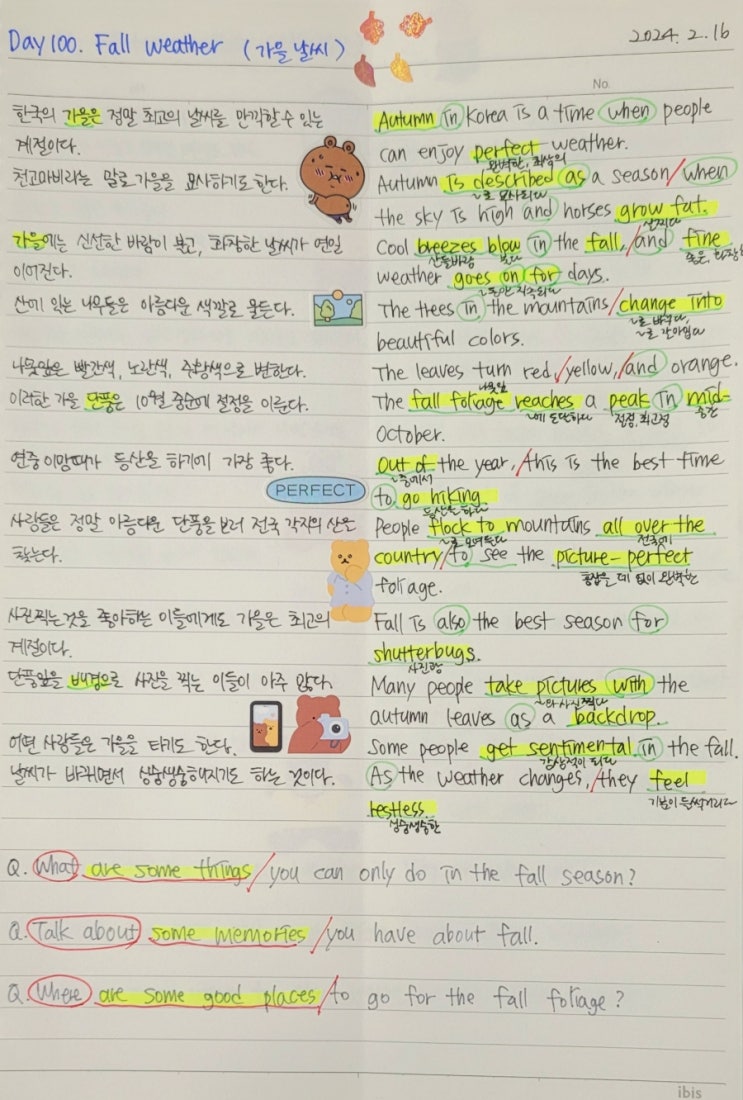 Day 100. Fall weather (가을 날씨)
2024. 2. 16
No.
한국의 가을은 정말 최고의 날씨를 만끽할 수 있는
계절이다.
천고마비라는 말로 가을을 묘사하기도 한다.
가을에는 신선한 바람이 불고, 화창한 날씨가 연일
이어진다.
산에 있는 나무들은 아름다운 색깔로 물든다.
나뭇잎은 빨간색, 노란색, 주황색으로 변한다.
이러한 가을 단풍은 10월 중순에 절정을 이룬다.
연중 이맘때가 등산을 하기에 가장 좋다.
PERFECT
사람들은 정말 아름다운 단풍을 보러 전국 각지의 산을
찾는다.
사진 찍는 것을 좋아하는 이들에게도 가을은 최고의
계절이다.
단풍잎을 배경으로 사진을 찍는 이들이 아주 많다.
어떤 사람들은 가을을 타기도 한다.
날씨가 바뀌면서 싱숭생숭해지기도 하는 것이다.
Autumn in Korea is a time when people
can enjoy perfect weather.
완벽한, 최상의
Autumn is described as a season / when
~로 묘사되다
the sky is high and horses grow fat.
살찌다
Cool breezes blow in the fall, / and fine
산들바람 불다 좋은, 화창한
weather goes on for days.
~동안 지속되다
The trees in the mountains / change into
~로 바뀌다,
~로 갈아입다
beautiful colors.
The leaves turn red, / yellow, / and orange.
나뭇잎
The fall foliage reaches a peak in mid-
~에 도달하다 절정, 최고점 중간
October.
Out of the year, / this is the best time
~중에서
to go hiking.
등산을 하다
People flock to mountains all over the
~로 모여든다 전국에
country / to see the picture-perfect
흠잡을 데 없이 완벽한
foliage.
Fall is also the best season for
shutterbugs.
사진광
Many people take pictures with the
~와 사진 찍다
autumn leaves as a backdrop.
Some people get sentimental in the fall.
감상적이 되다
As the weather changes, / they feel
기분이 들썩거리다
restless.
싱숭생숭한
Q. What are some things / you can only do in the fall season?
Q. Talk about some memories / you have about fall.
Q. Where are some good places / to go for the fall foliage?
ibis